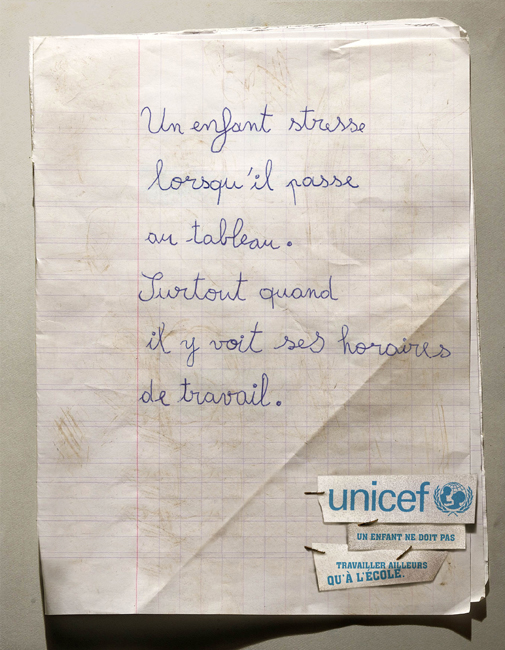 Un enfant stresse
lorsqu'il passe
au tableau.
Surtout quand
il y voit ses horaires
de travail.
unicef
UN ENFANT NE DOIT PAS
TRAVAILLER AILLEURS
QU'À L'ÉCOLE.